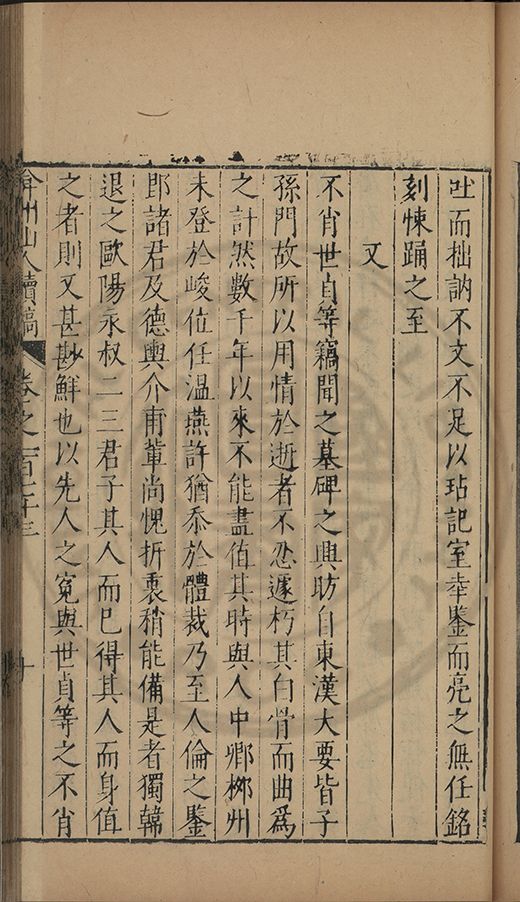 吐而拙訥不文不足以玷記室幸鑒而亮之無任銘
刻悚踊之至
又
不肖世貞等竊聞之墓碑之興昉自東漢大要皆子
孫門故所以用情於逝者不忍遽朽其白骨而曲爲
之計然數千年以來不能盡值其時與人中郎柳州
未登於峻位任温燕許猶忝於體裁乃至人倫之鑒
郎諸君及德輿介甫輩尚愧折衷稍能備是者獨韓
退之歐陽永叔二三君子其人而巳得其人而身值
之者則又甚尠鮮也以先人之冤與世貞等之不肖
弇州山人續稿 卷之一百二十三 十